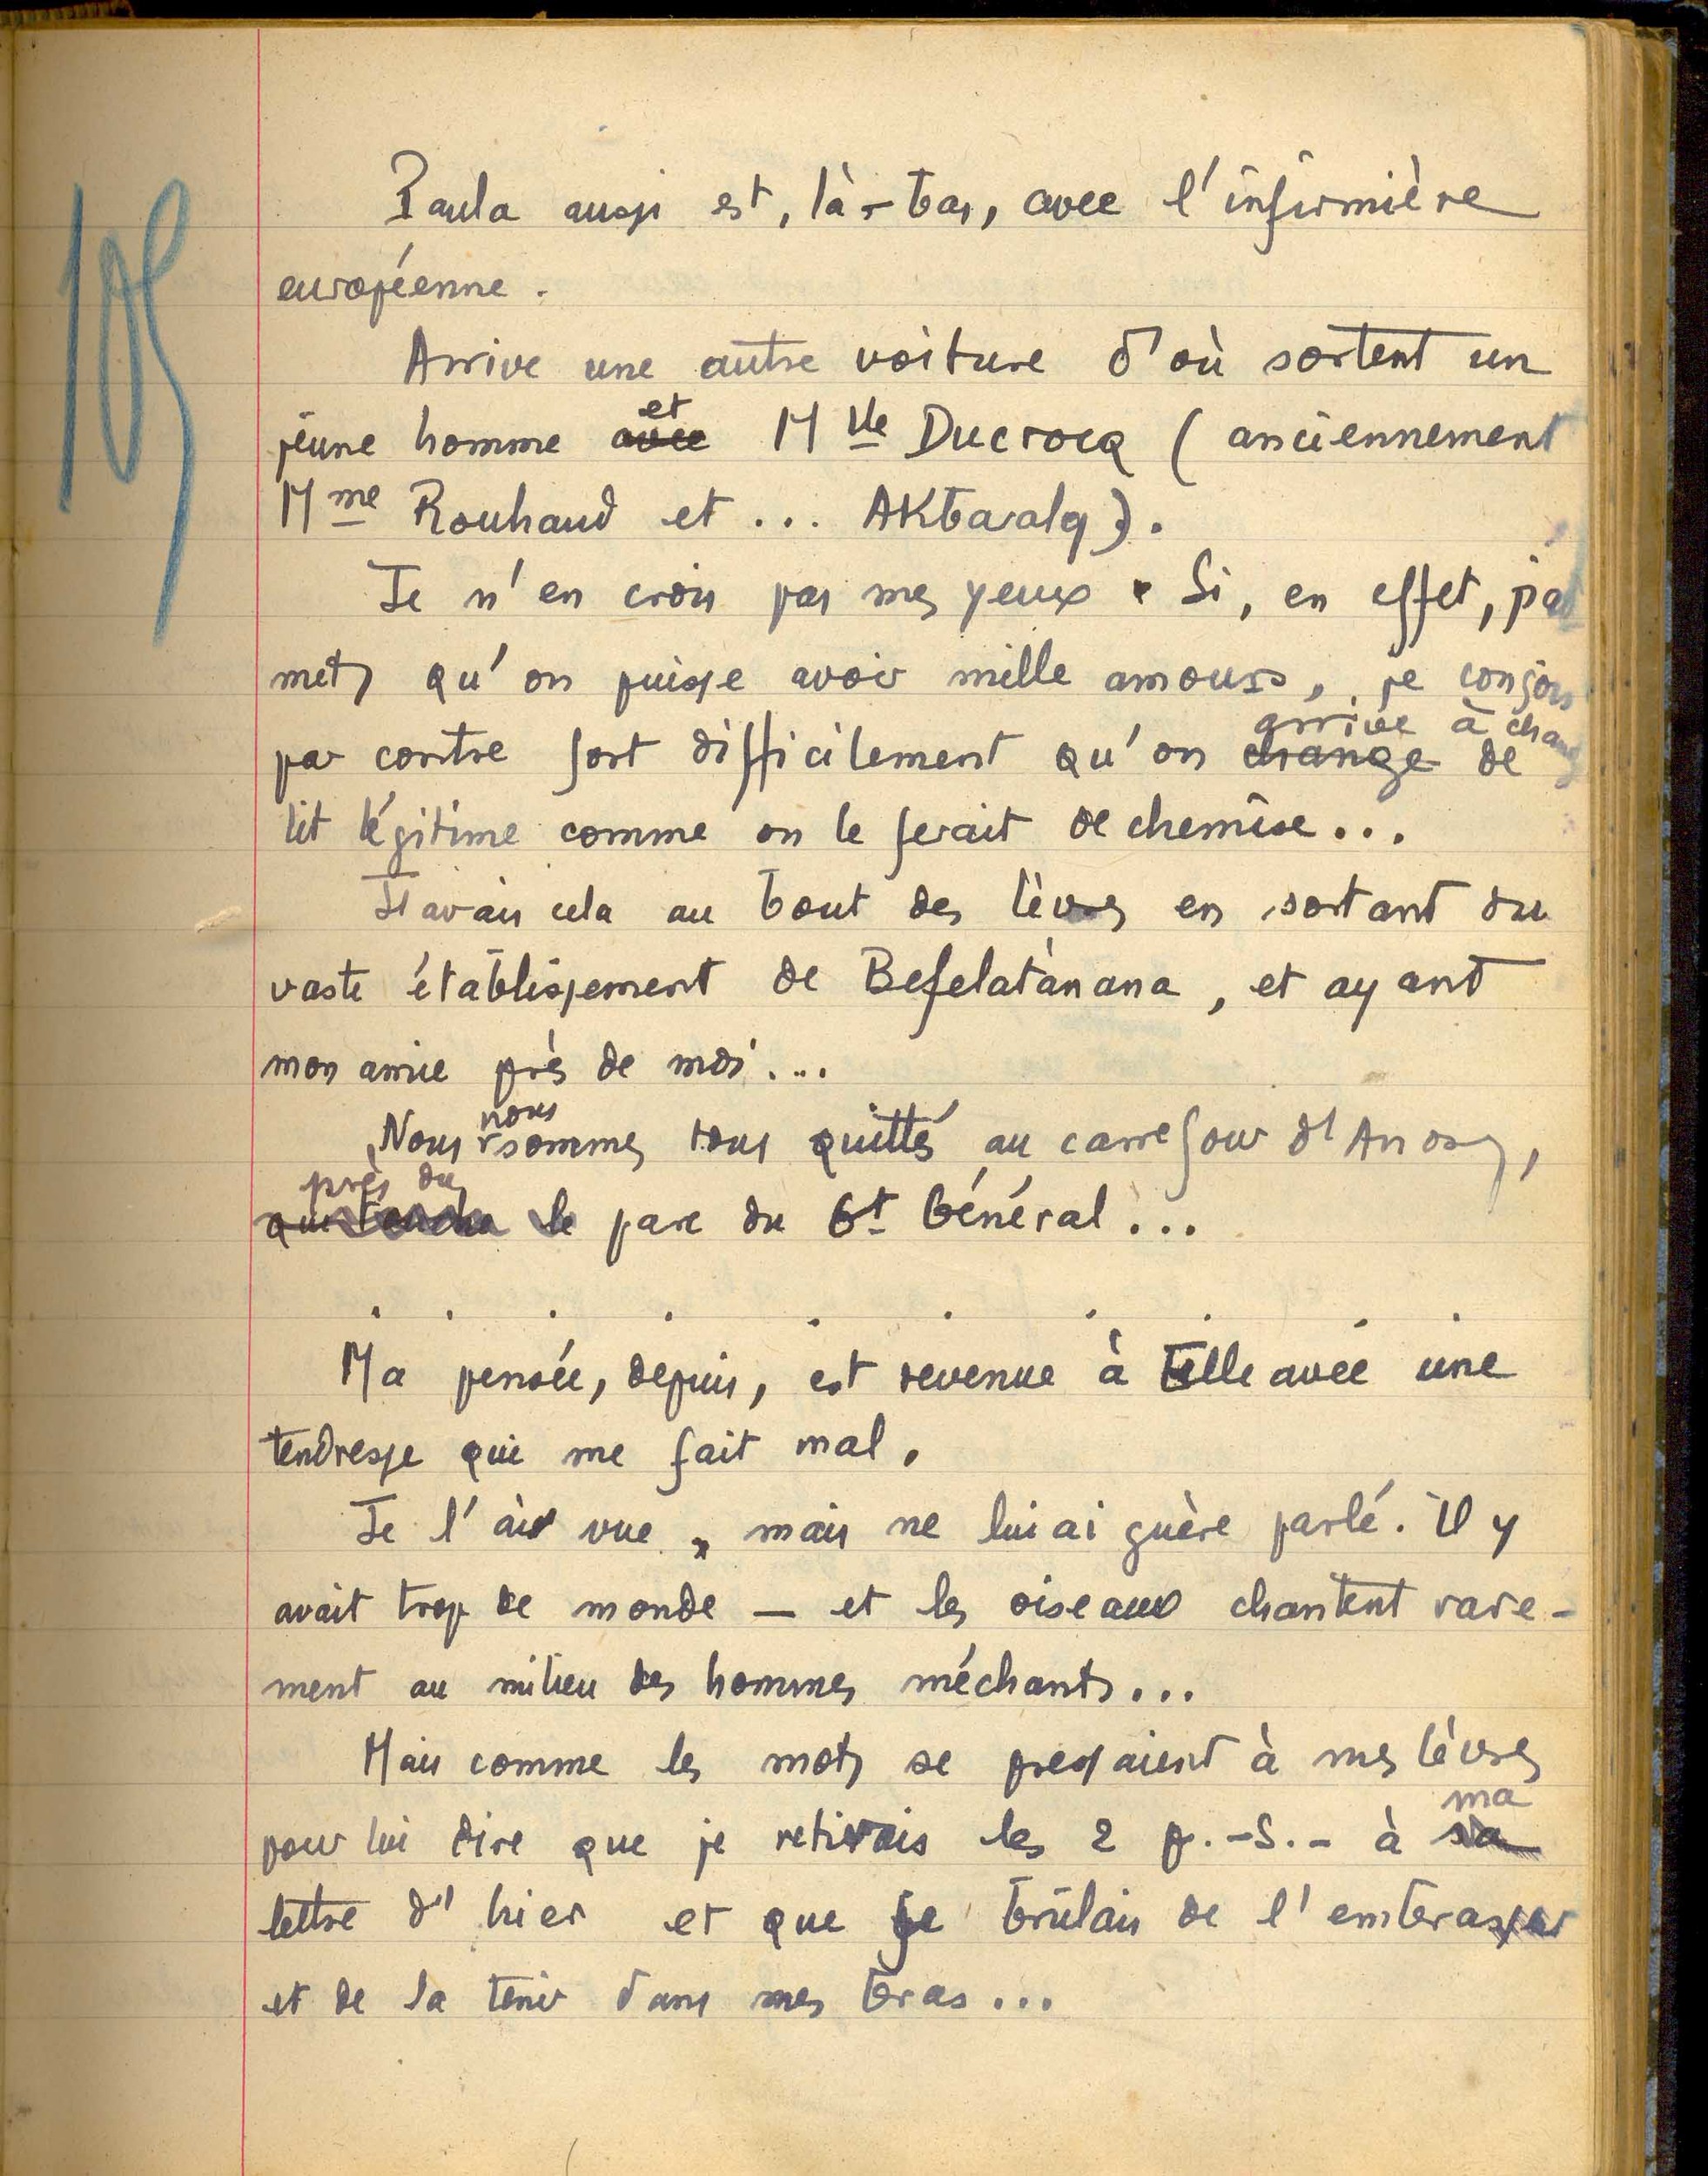 105
Paula aussi est, là-bas, avec l'infirmière
européenne.
Arrive une autre voiture d'où sortent un
jeune homme avec et Mlle Ducrocq (anciennement
Mme Rouhaud et ... Akbaraly).
Je n'en crois pas mes yeux. Si, en effet, j'ad
mets qu'on puisse avoir mille amours, je conçois
par contre fort difficilement qu'on change arrive à chang de
lit légitime comme on le ferait de chemise...
J'avais cela au bout des lèvres en sortant du
vaste établissement de Befelatànana, et ayant
mon amie près de moi...
Nous nous sommes tous quittés au carrefour d'Anosy,
près du parc du Gt Général...
. . . . . . . . .
Ma pensée, depuis, est revenue à Elle avec une
tendresse qui me fait mal.
Je l'ai vue, mais ne lui ai guère parlé. Il y
avait trop de monde — et les oiseaux chantent rare-
ment au milieu des hommes méchants...
Mais comme les mots se pressaient à mes lèvres
pour lui dire que je retirais les 2 p.-S.- à sa ma
lettre d'hier et que je brûlais de l'embrasser
et de la tenir dans mes bras...